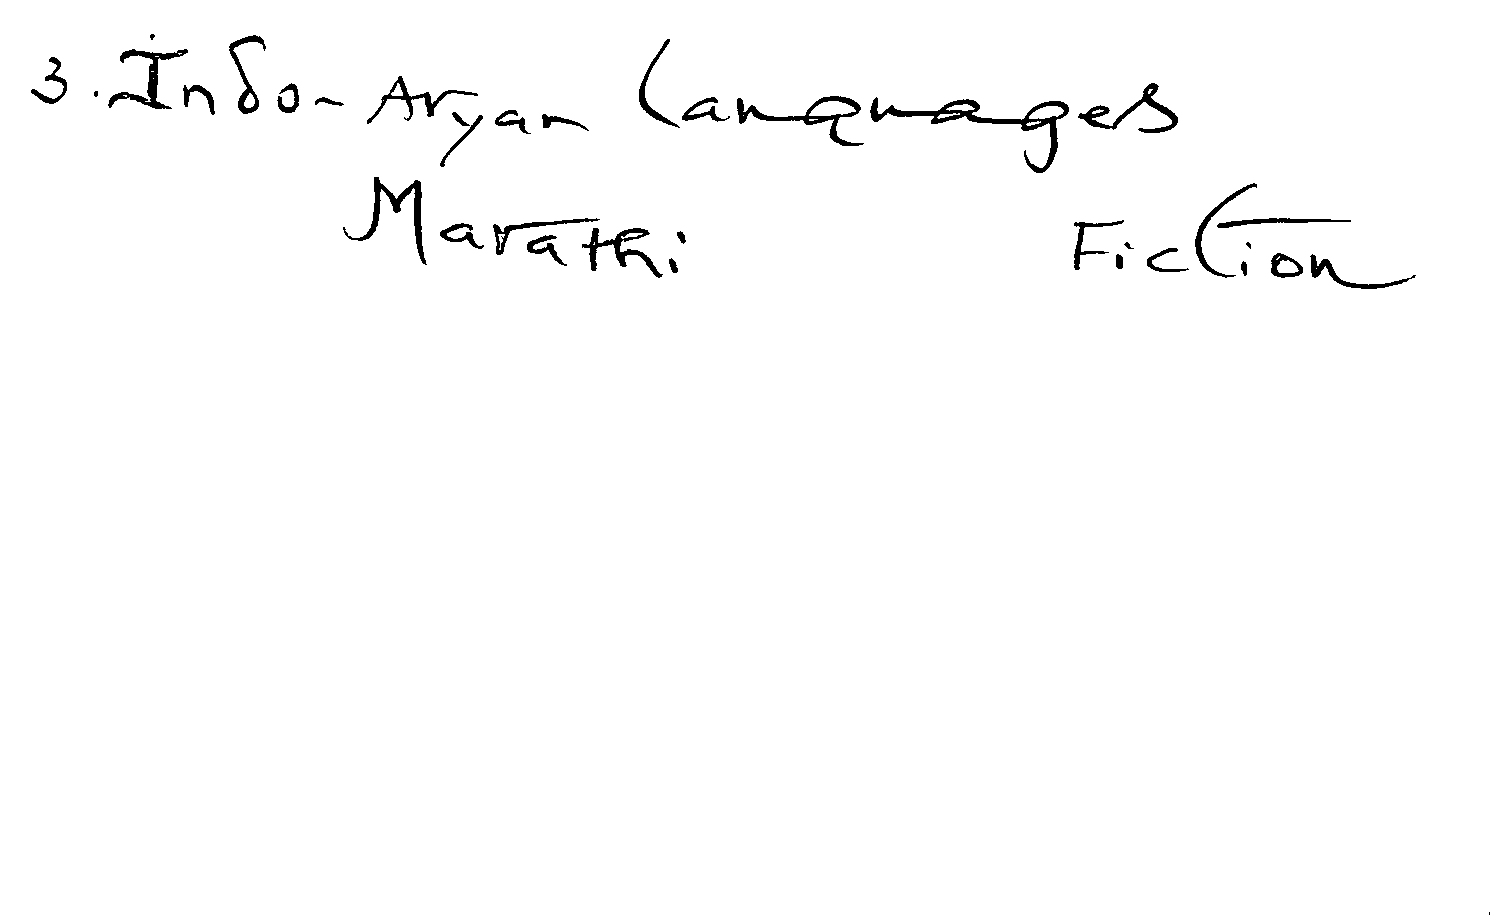 3. Indo-Aryan Languages
Marathi Fiction